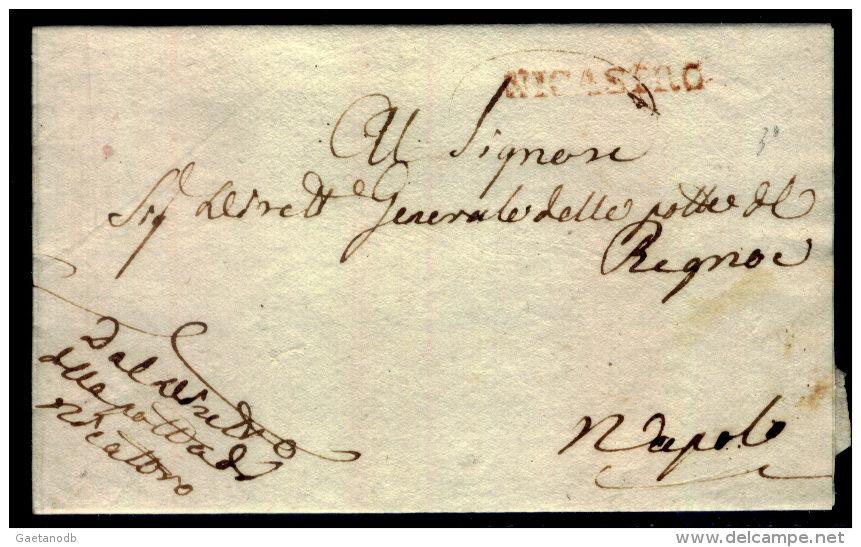 NICASTRO
Al Signore
Sig.r Dirett.e Generale delle poste del
Regno
Napoli
Dal Dirett.e
della posta di
Nicastro
Gaetanodb
www.delcampe.net